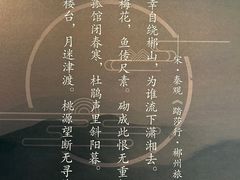 宋·秦观《踏莎行·郴州旅
幸自绕郴山，为谁流下潇湘去。
梅花，鱼传尺素。砌成此恨无重
孤馆闭春寒，杜鹃声里斜阳暮。
楼台，月迷津渡。桃源望断无寻